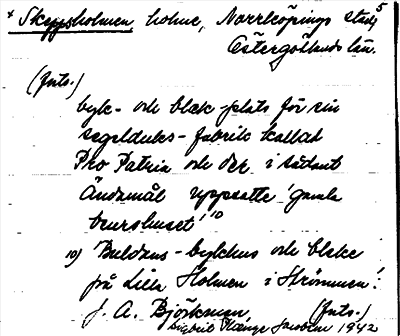 * Skeppsholmen, holme, Norrköpings stad, 5
Östergötlands län.
(forts.)
byk- och blek-plats för sin
segelduks-fabrik kallad
Pro Patria och der i sådant
Ändamål uppsatte 'gamla
beurshuset' 10
10) Buldans-bykhus och bleke
på lilla Holmen i Strömmen!
J. A. Björkman, (forts.)
1942